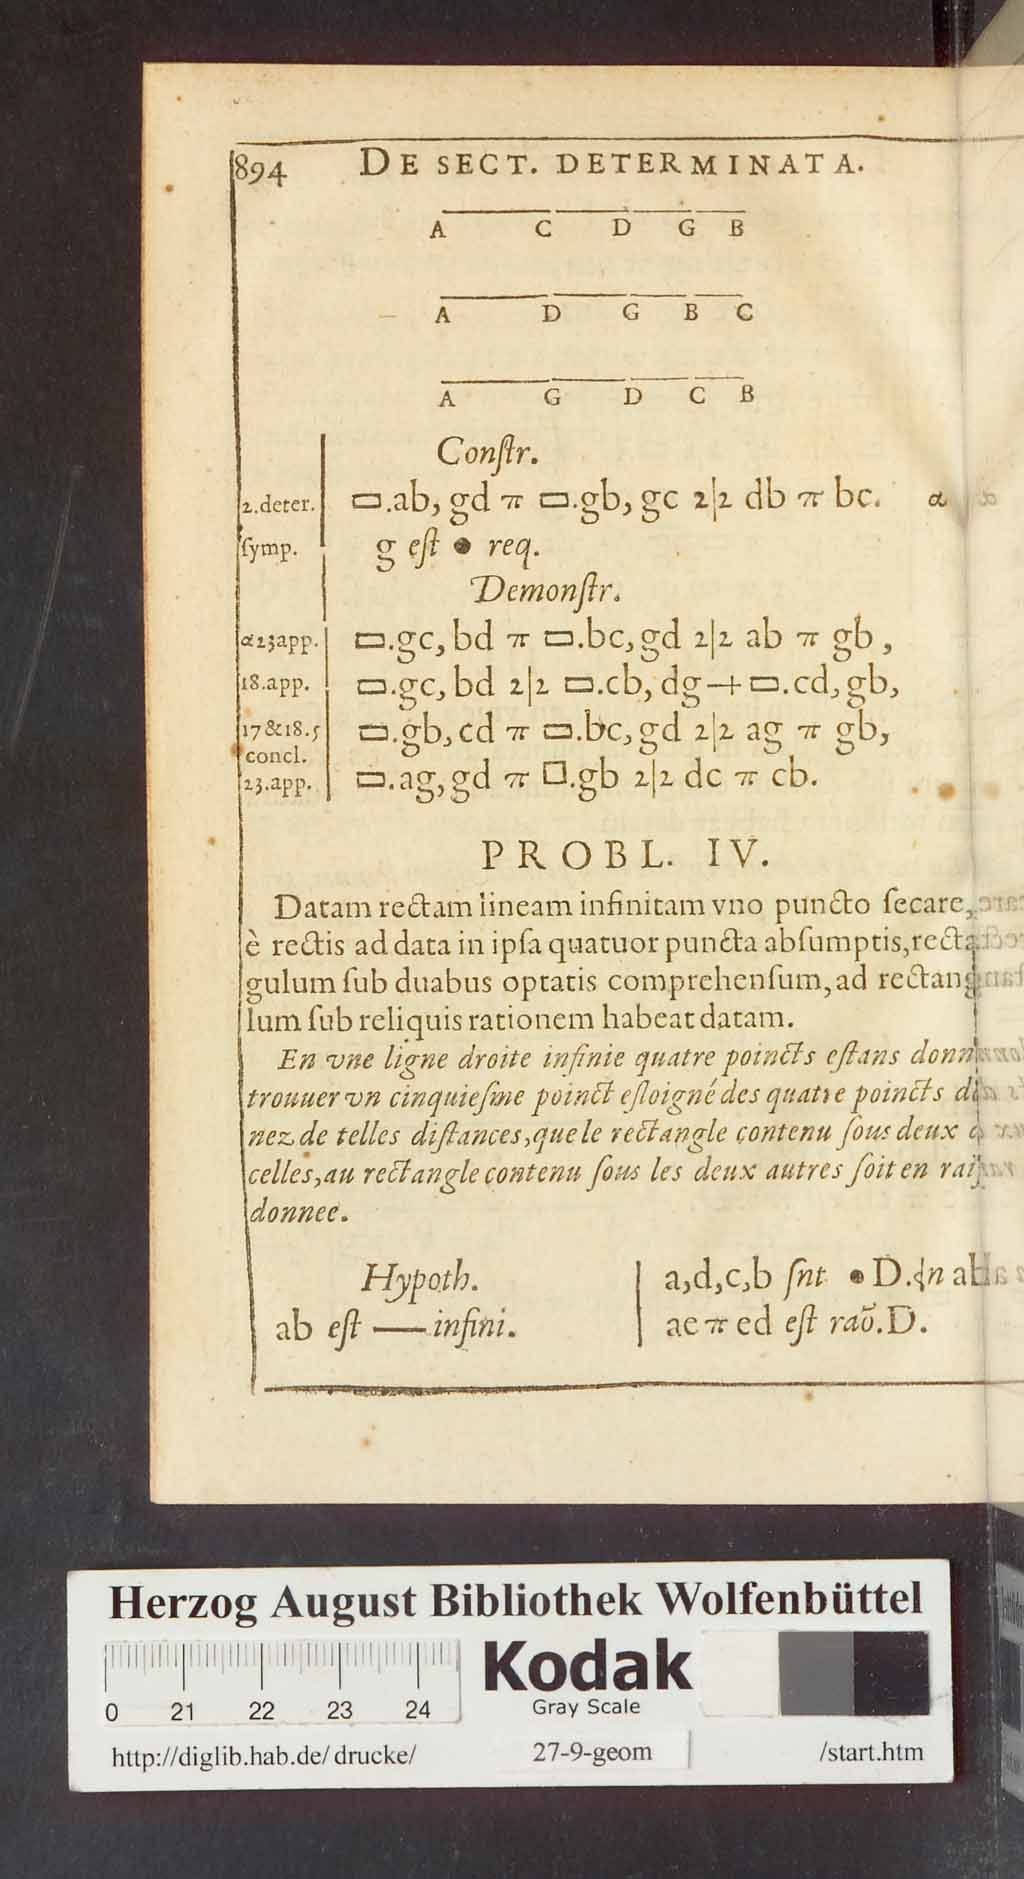 894 DE SECT. DETERMINATA.
A C D G B
A D G B C
A G D C B
Conſtr.
2.deter. ▭.ab, gd π ▭.gb, gc 2|2 db π bc. α
ſymp. g eſt ● req.
Demonſtr.
α23app. ▭.gc, bd π ▭.bc, gd 2|2 ab π gb,
18.app. ▭.gc, bd 2|2 ▭.cb, dg + ▭.cd, gb,
17&18.5 ▭.gb, cd π ▭.bc, gd 2|2 ag π gb,
concl.
23.app. ▭.ag, gd π □.gb 2|2 dc π cb.
PROBL. IV.
Datam rectam lineam infinitam vno puncto ſecare,
è rectis ad data in ipſa quatuor puncta abſumptis, rectā
gulum ſub duabus optatis comprehenſum, ad rectang
lum ſub reliquis rationem habeat datam.
En vne ligne droite infinie quatre poincts eſtans donn
trouuer vn cinquieſme poinct eſloigné des quatre poincts
nez de telles diſtances, que le rectangle contenu ſous deux
celles, au rectangle contenu ſous les deux autres ſoit en raiſ
donnee.
Hypoth.
ab eſt — infini.
a,d,c,b ſnt ● D. in ab
ae π ed eſt raō.D.
Herzog August Bibliothek Wolfenbüttel
Kodak
Gray Scale
0 21 22 23 24
http://diglib.hab.de/drucke/ 27-9-geom /start.htm